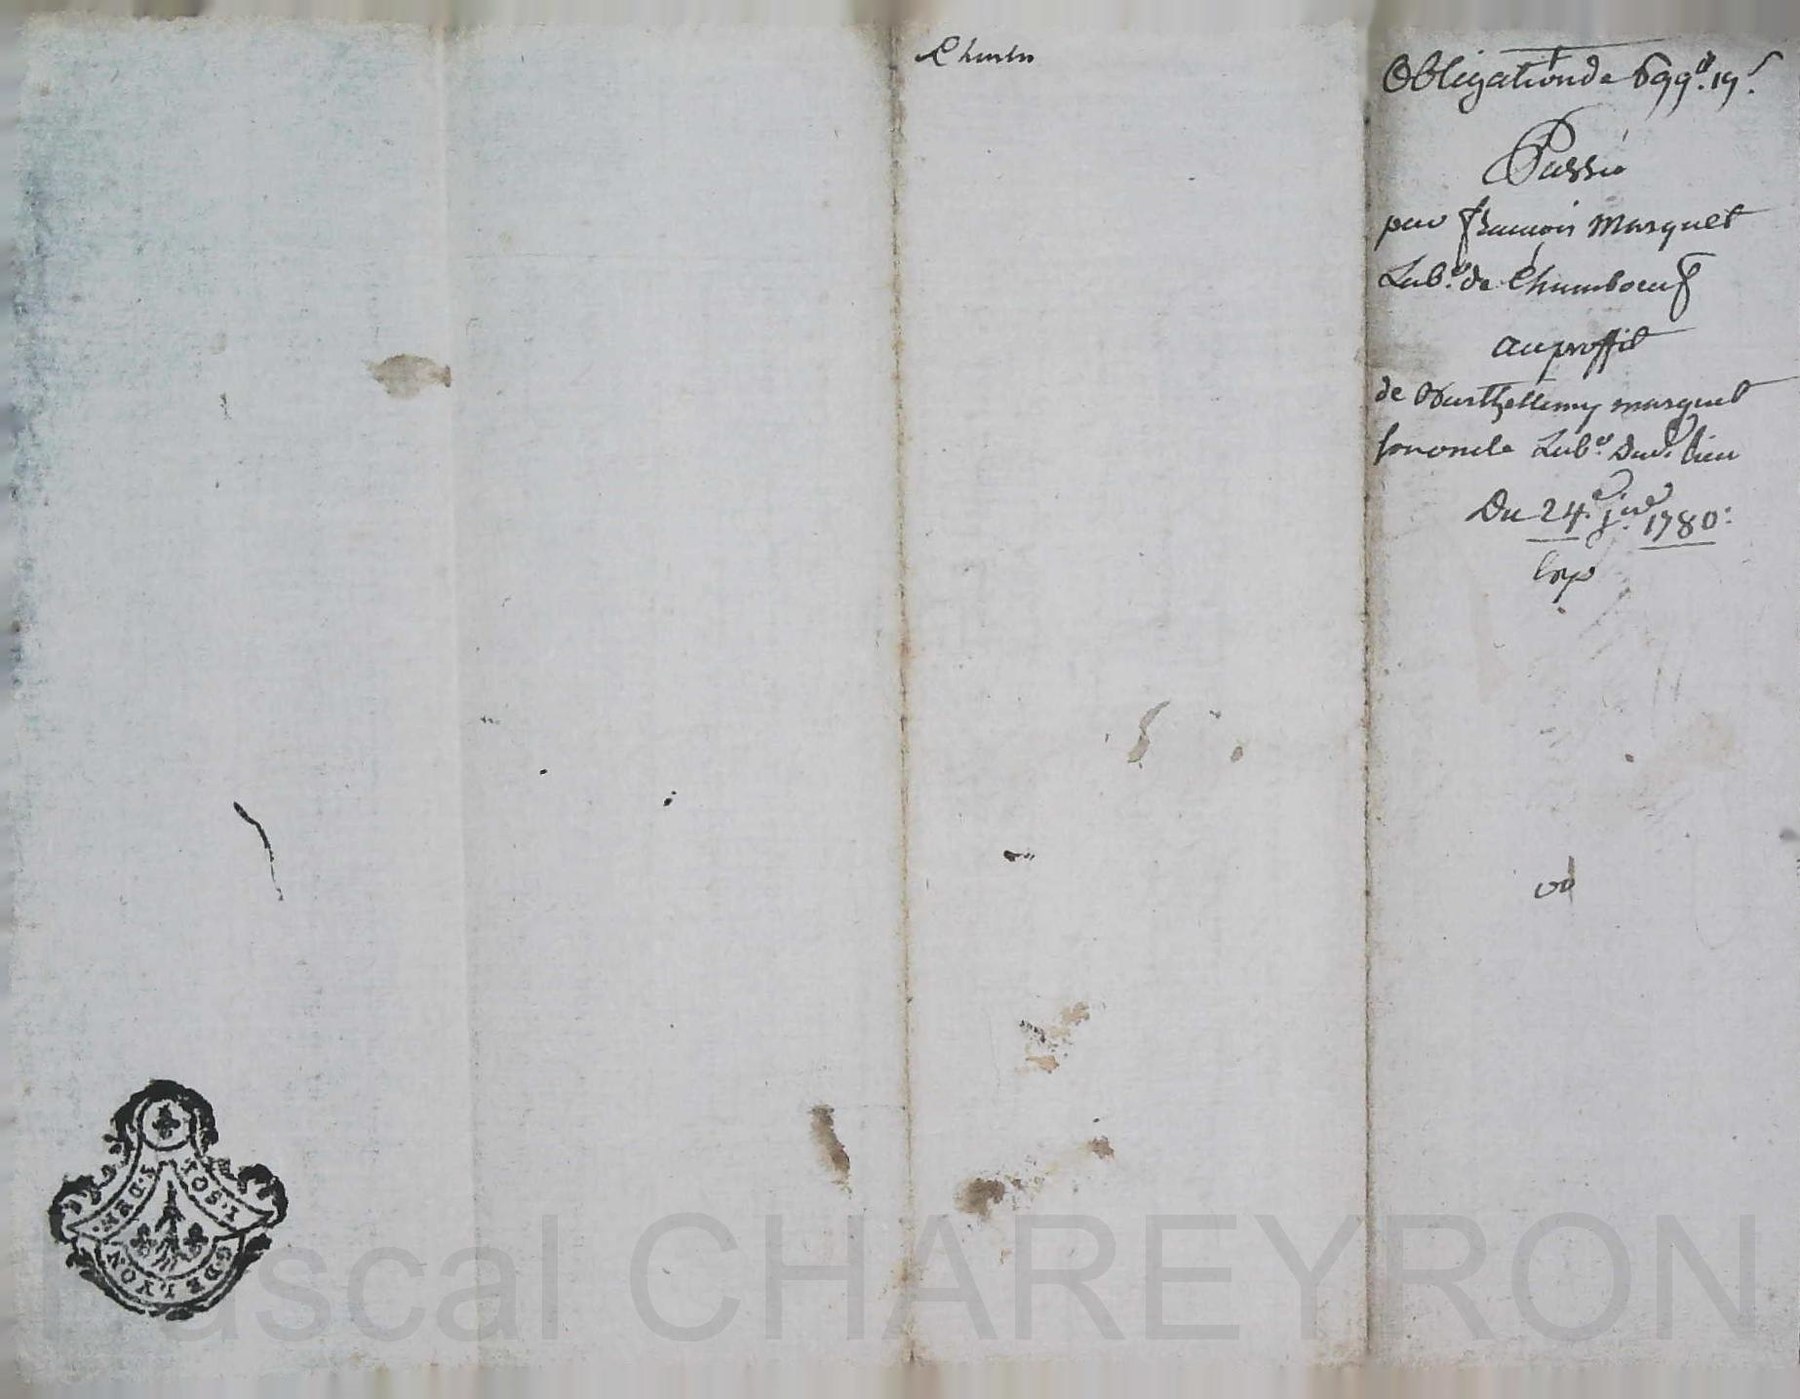 Charles
Obligation de 699ᵗᵗ. 19ˢ.
Passée
par françois Marquet
Lab.ʳ de Chamboeuf
au proffit
de Barthellemy marquet
son oncle Lab.ʳ dud. lieu
Du 24.ᵉ j.ᵉʳ 1780.
Exp
G. DE LYON
Pascal CHAREYRON